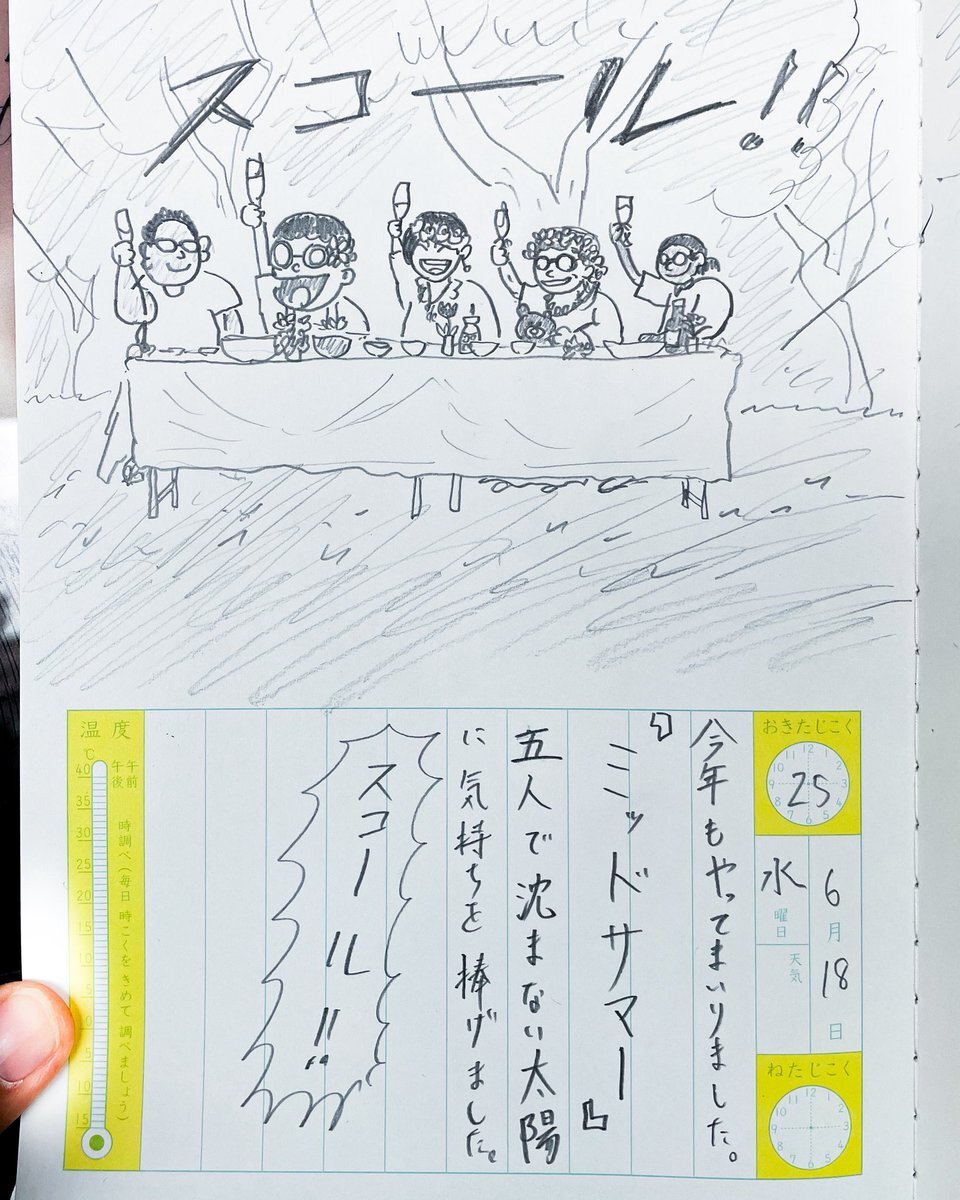 スコール!!
おきたじこく
25
6月18日
水曜日
天気
ねたじこく
今年もやってまいりました。
『ミッドサマー』
五人で沈まない太陽
に気持ちを捧げました。
スコール!!
温度
℃
午前
午後
時調べ(毎日 時こくを きめて 調べましょう)
40
35
30
25
20
15
10
5
0
5
10
15